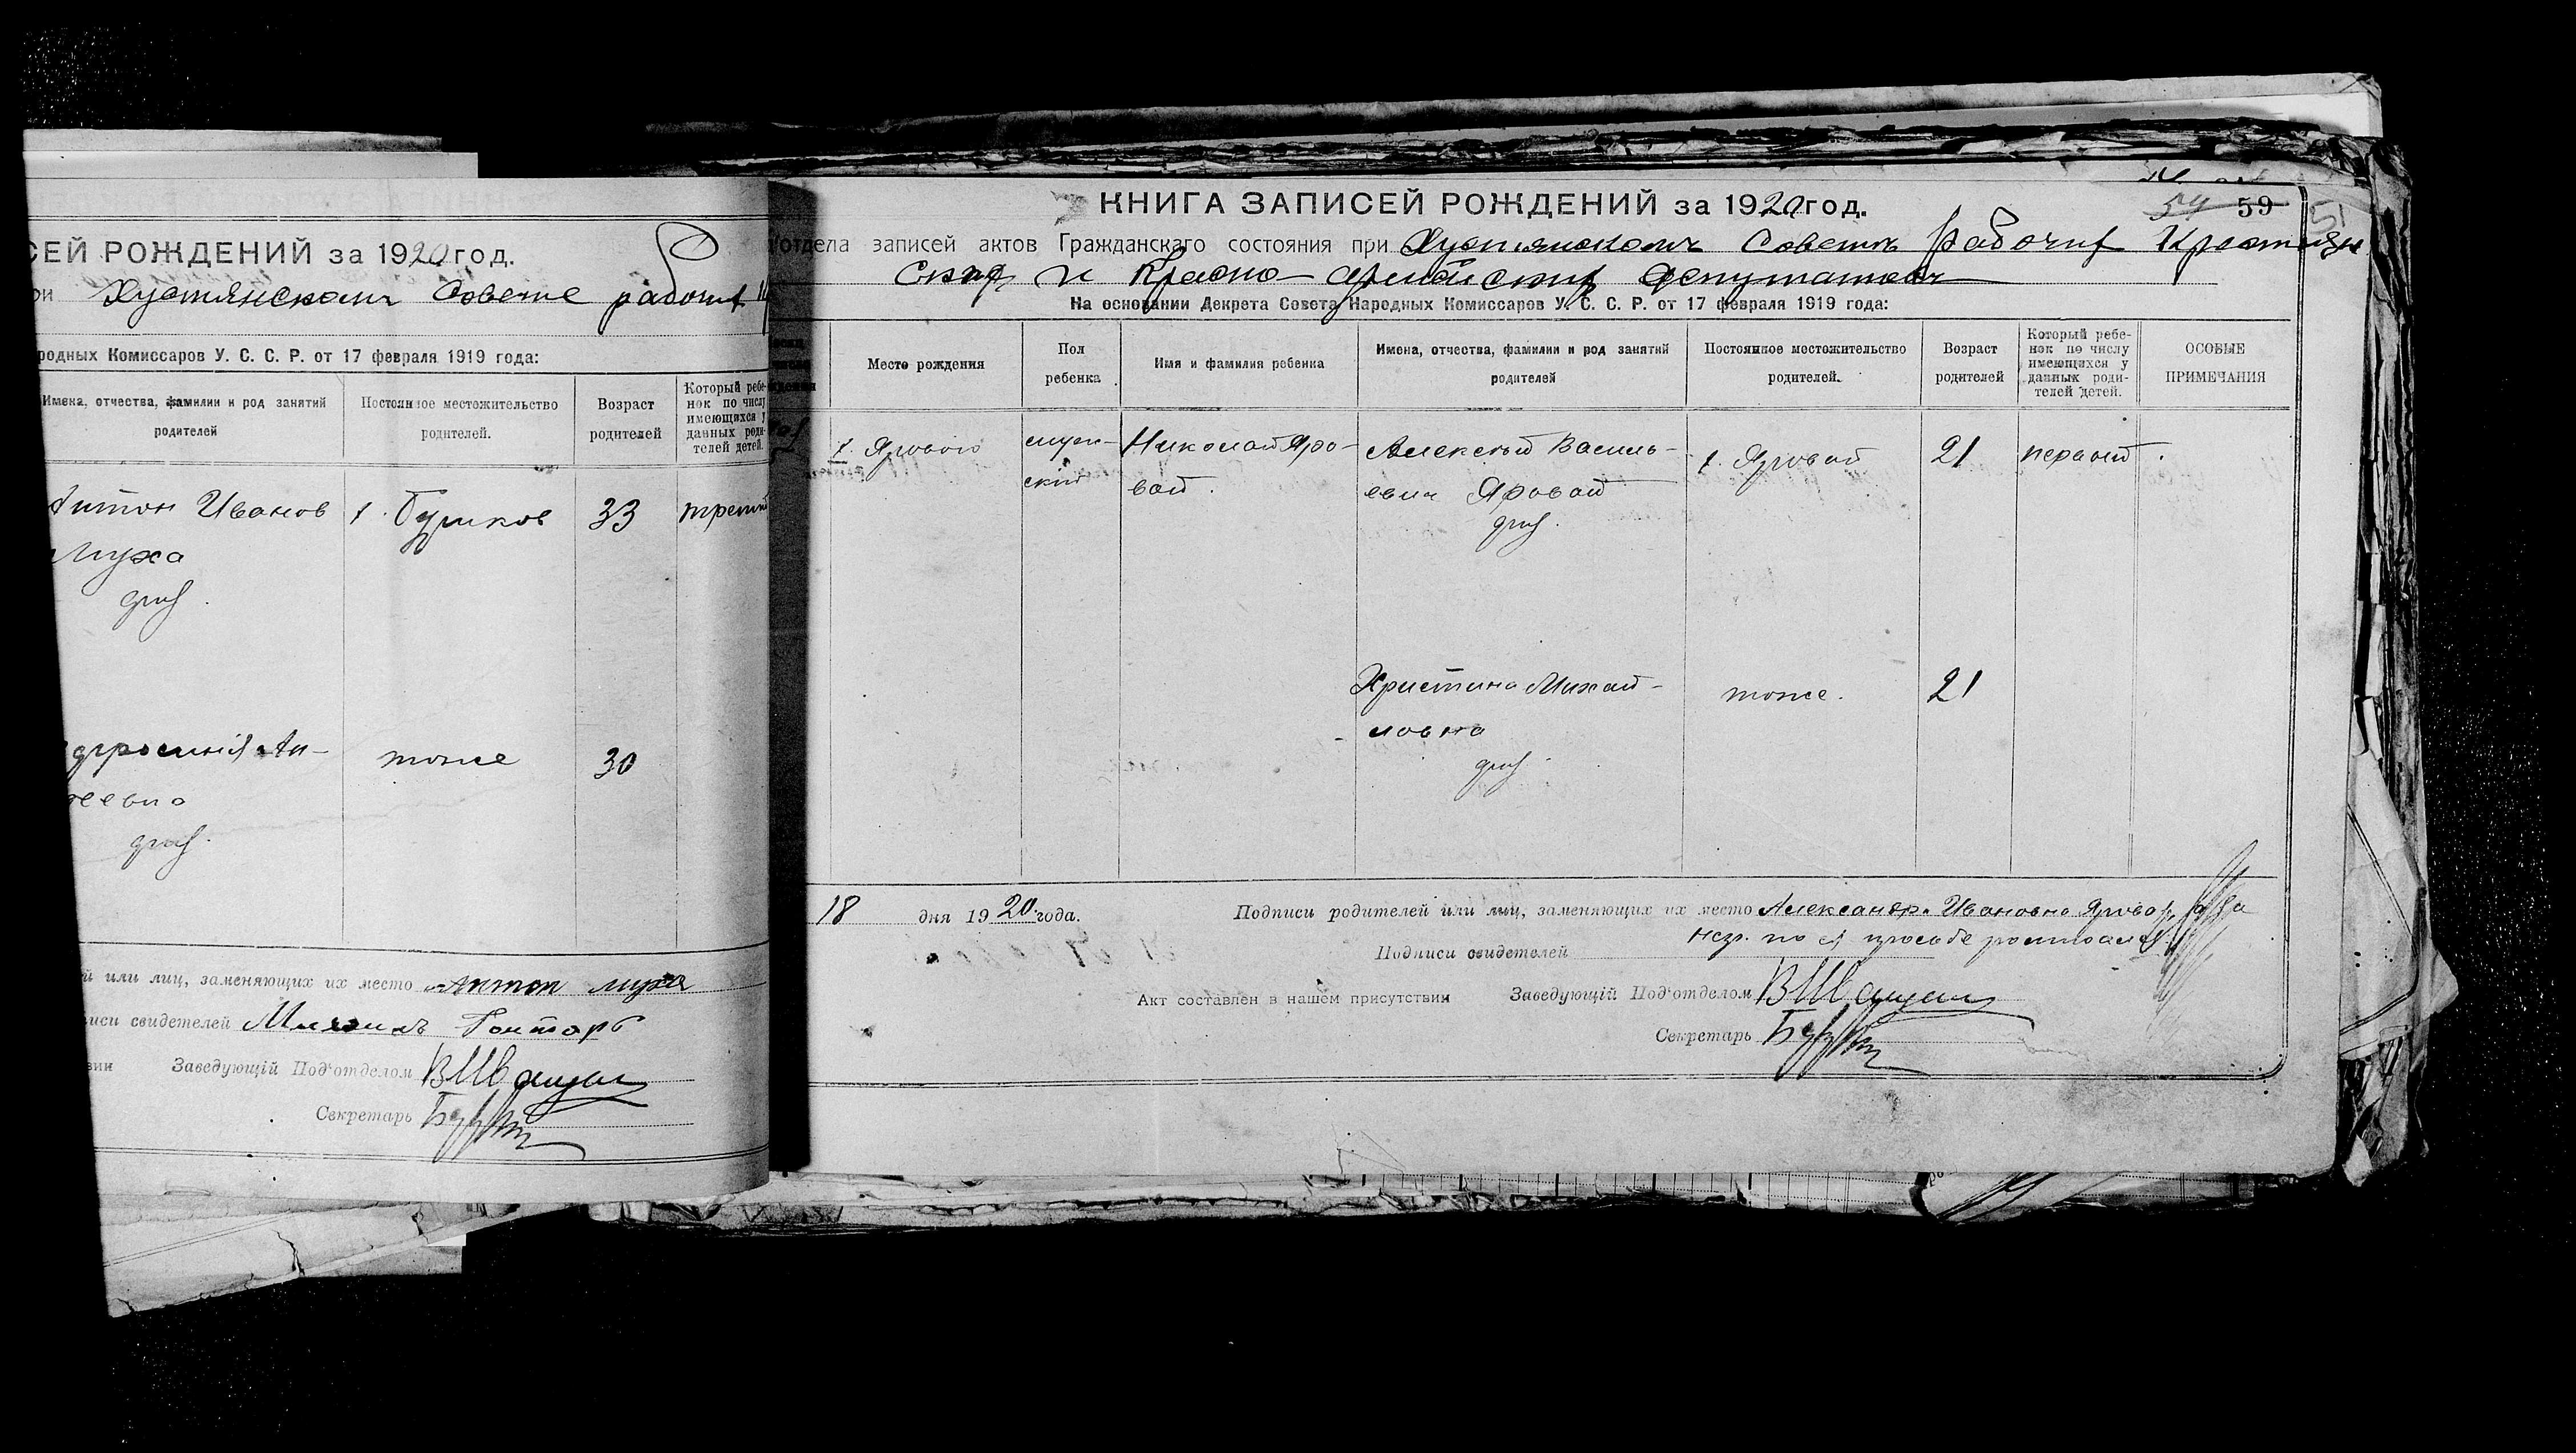 СЕЙ РОЖДЕНИЙ за 1920 год.
ри Хустянском Совете рабочих
родных Комиссаров У. С. С. Р. от 17 февраля 1919 года:
Имена, отчества, фамилии и род занятий родителей
Постоянное местожительство родителей.
Возраст родителей
Который ребенок по числу имеющихся у данных родителей детей.
Антон Иванов
Муха
х. Буликов
33
третий
тоже
30
й или лиц, заменяющих их место Антон муха
писи свидетелей Михаил Гонтарь
вии Заведующій Под'отделом
Секретарь
КНИГА ЗАПИСЕЙ РОЖДЕНИЙ за 1920 год.
54 59
51
'отдела записей актов Гражданскаго состояния при Хустянском Совете Рабочих Крестьян
ских и Красно-армейских депутатов
На основании Декрета Совета Народных Комиссаров У. С. С. Р. от 17 февраля 1919 года:
Место рождения
Пол ребенка
Имя и фамилия ребенка
Имена, отчества, фамилии и род занятий родителей
Постоянное местожительство родителей.
Возраст родителей
Который ребенок по числу имеющихся у данных родителей детей.
ОСОБЫЕ ПРИМЕЧАНИЯ
х. Ярового
мужской
Николай Яровой.
Алексей Васильевич Яровой
х. Яровой
21
первый.
Христина Михайловна
тоже.
21
18 дня 1920 года.
Подписи родителей или лиц, заменяющих их место Александр. Ивановна Ярова
нег. по ея просьбе росписался
Подписи свидетелей
Акт составлен в нашем присутствии Заведующій Под'отделом
Секретарь